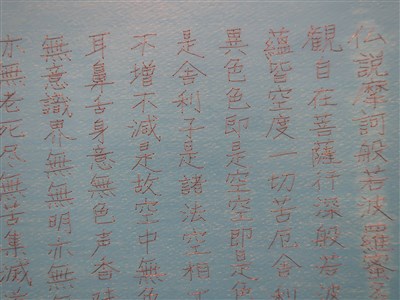 仏説摩訶般若波羅蜜多
觀自在菩薩行深般若波
蘊皆空度一切苦厄舎利
異色色即是空空即是色
是舎利子是諸法空相
不増不減是故空中無色
耳鼻舌身意無色声香味
無意識界無無明亦無
亦無老死尽無苦集滅道